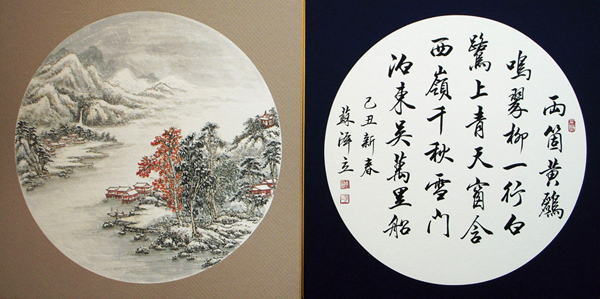 兩箇黃鸝
鳴翠柳一行白
鷺上青天窗含
西嶺千秋雪門
泊東吳萬里船
己丑新春
蘇泽立